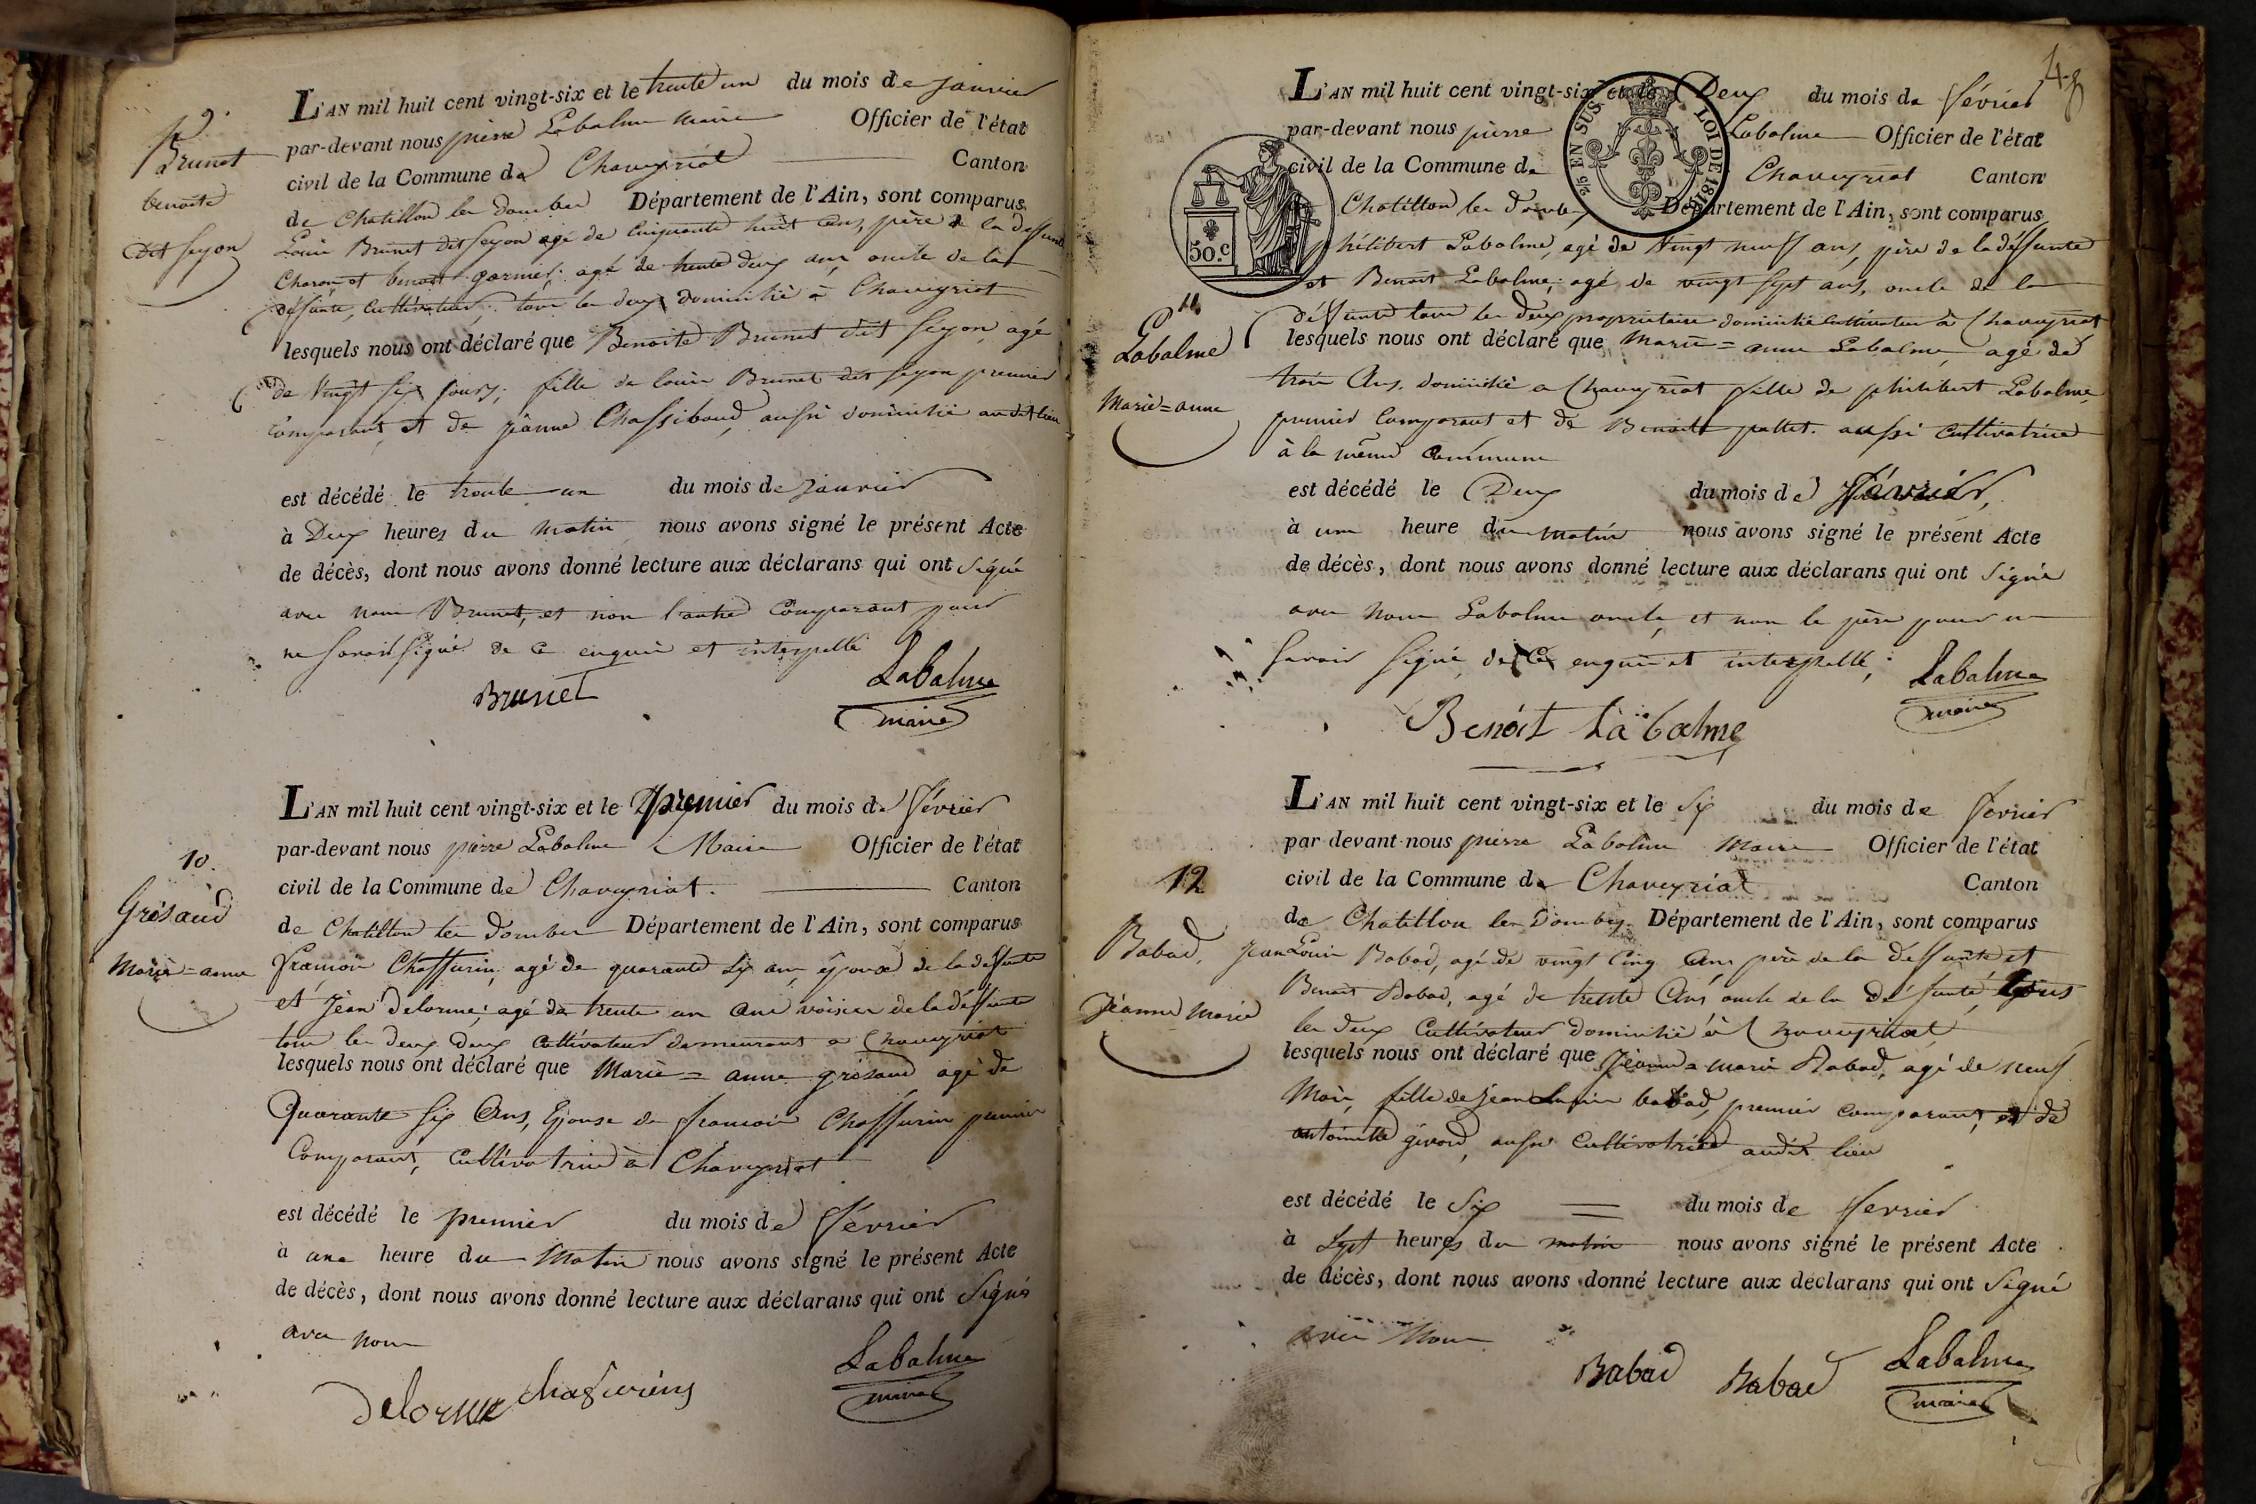 9.
Brunet
benoite
dit Seyon
L'AN mil huit cent vingt-six et le trente un du mois de janvier
par-devant nous pierre Labalme Maire Officier de l'état
civil de la Commune de Chaveyriat Canton
de Chatillon les Dombes Département de l'Ain, sont comparus
Louis Brunet dit Seyon agé de cinquante huit ans, père de la deffunte
et benoit agé de trente deux ans oncle de la
défunte, cultivateurs, tous les deux domicilié à Chaveyriat
lesquels nous ont déclaré que Benoite Brunet dit Seyon, agé
de Vingt six jours, fille de louis Brunet dit seyon premier
comparant, et de jéanne Chassiboud, aussi domicilié audit lieu
est décédé le trente un du mois de janvier
à Deux heures du matin nous avons signé le présent Acte
de décès, dont nous avons donné lecture aux déclarans qui ont signé
avec nous Brunet, et non l'autre comparant pour
ne savoir signé de ce enquis et interpellé
Brunet
Labalme
maire
10.
Grésaud
Marie=anne
L'AN mil huit cent vingt-six et le Premier du mois de février
par-devant nous pierre Labalme Maire Officier de l'état
civil de la Commune de Chaveyriat. Canton
de Chatillon les Dombes Département de l'Ain, sont comparus
françois Chaffurin, agé de quarante six ans, époux de la deffunte
et Jéan delorme, agé de trente un ans voisin de la déffunte
tous les deux Deux cultivateurs demeurant a Chaveyriat
lesquels nous ont déclaré que Marie=anne grésaud agé de
Quarante six Ans, Epouse de françois Chaffurin premier
Comparant, cultivatrice à Chaveyriat
est décédé le premier du mois de février
à une heure du Matin nous avons signé le présent Acte
de décès, dont nous avons donné lecture aux déclarans qui ont Signé
avec nous
Delorme chafurins
Labalme
maire
48
50.c
2/5 EN SUS LOI DE
11.
Labalme
Marie=anne
L'AN mil huit cent vingt-six et le Deux du mois de février
par-devant nous pierre Labalme Officier de l'état
civil de la Commune de Chaveyriat Canton
Chatillon les Dombes Département de l'Ain, sont comparus
philibert Labalme, agé de Vingt neuff ans, père de la déffunte
et Benoit Labalme, agé de vingt sept ans, oncle de la
déffunte tous les deux propriétaire domicilié cultivateur à Chaveyriat
lesquels nous ont déclaré que Marie=anne Labalme, agé de
trois Ans, domicilié a Chaveyriat fille de philibert Labalme,
premier Comparant et de Benoite pallet. aussi cultivatrice
à la même commune
est décédé le Deux du mois de février,
à une heure du matin nous avons signé le présent Acte
de décès, dont nous avons donné lecture aux déclarans qui ont signé
avec nous Labalme oncle, et non le père pour ne
savoir signé, de ce enquis et interpellé;
Labalme
maire
Benoit Labalme
12
Babad,
Jéanne Marie
L'AN mil huit cent vingt-six et le Six du mois de fevrier
par devant nous pierre Labalme Maire Officier de l'état
civil de la Commune de Chaveyriat Canton
de Chatillon les Dombes Département de l'Ain, sont comparus
Jean Louis Babad, agé de vingt cinq Ans, père de la deffunte et
Benoit Babad, agé de trente Ans oncle de la défunte, tous
les deux cultivateur domicilié à Chaveyriat
lesquels nous ont déclaré que Jéanne=marie Babad, agé de neuf
Mois, fille de jean louis babad, premier comparant, et de
antoinette givord, aussi cultivatrice audit lieu
est décédé le Six du mois de fevrier
à Sept heures du matin nous avons signé le présent Acte
de décès, dont nous avons donné lecture aux déclarans qui ont signé
avec Nous
Babad Babad
Labalme
maire